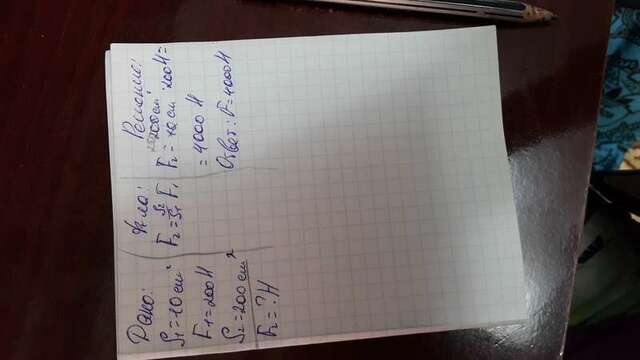 Дано:
S₁=10 см²
F₁=200 Н
S₂=200 см²
F₂=? Н
Ф-ла:
F₂=S₂/S₁ F₁
Решение:
F₂= 200 см²/10 см² · 200 Н=
= 4000 Н
Ответ: F=4000 Н